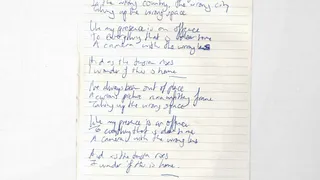 In the wrong country, the wrong city
Taking up the wrong space
Like my presence is an offence
To everything that is home
A camera with the wrong lens
And as the tension rises
I wonder if this is home
I've always been out of place
A picture frame
Taking up the wrong space
Like my presence is an offence
To everything that is home
A camera with the wrong lens
And as the tension rises
I wonder if this is home